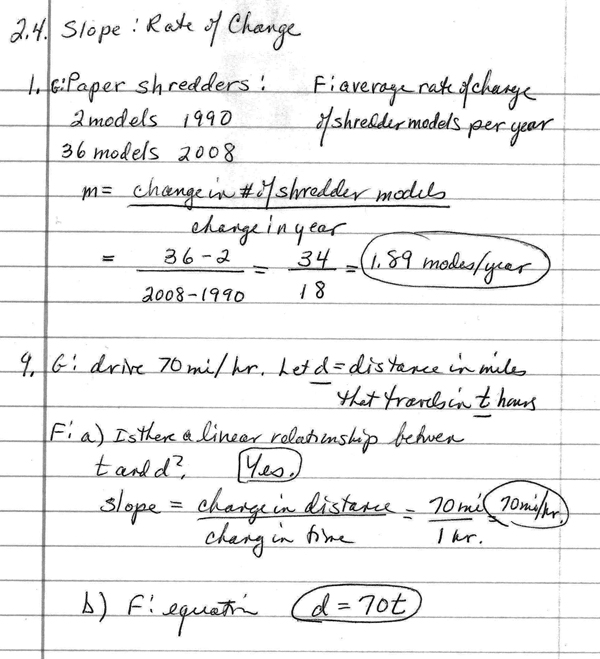 2.4. Slope : Rate of Change
1. G: Paper shredders : F: average rate of change
2 models 1990 of shredder models per year
36 models 2008
m = change in # of shredder models
change in year
= 36 - 2 = 34 = 1.89 modes/year
2008 - 1990 18
9. G: drive 70 mi/hr. Let d = distance in miles
that travels in t hours
F: a) Is there a linear relationship betwen
t and d? Yes.
slope = change in distance = 70 mi = 70 mi/hr.
chang in time 1 hr.
b) F: equation d = 70t